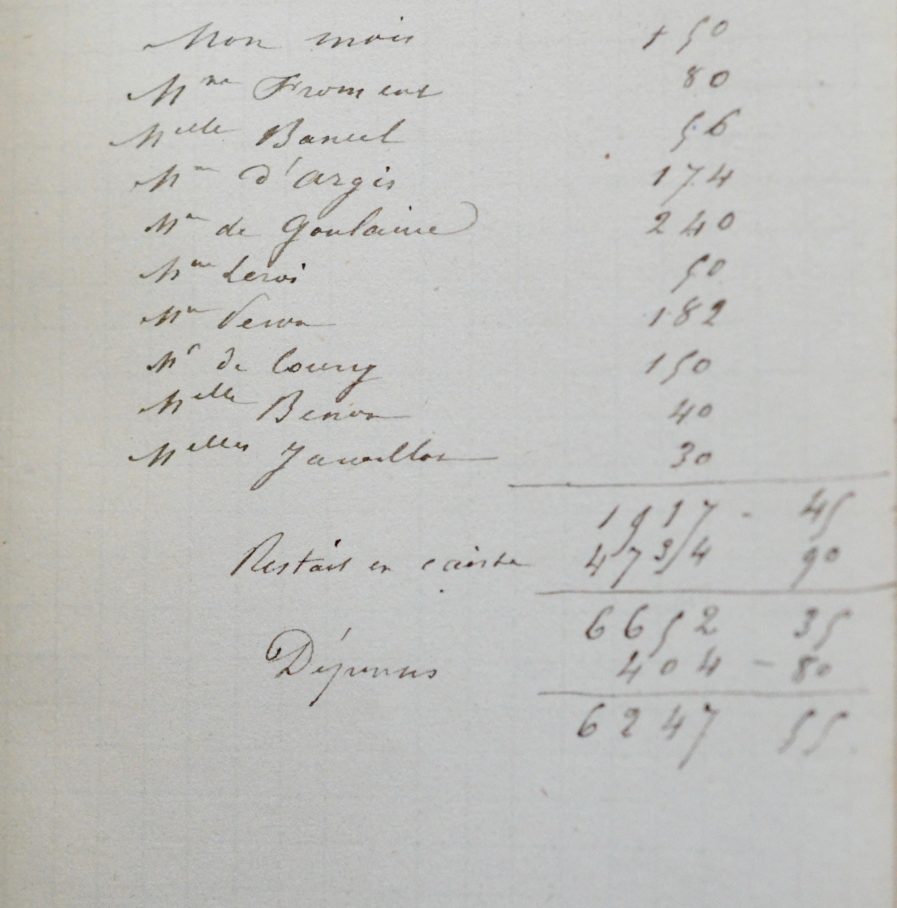 Mon mois 150
Mme Froment 80
Melle Bancel 56
Mme d'Argis 174
Mme de Goulaine 240
Mme Leroi 50
Mme 182
Mr de Courcy 150
Melle Benon 40
Melles 30
1917 - 45
Restait en caisse 4734 90
6652 - 35
Dépenses 404 - 80
6247 55